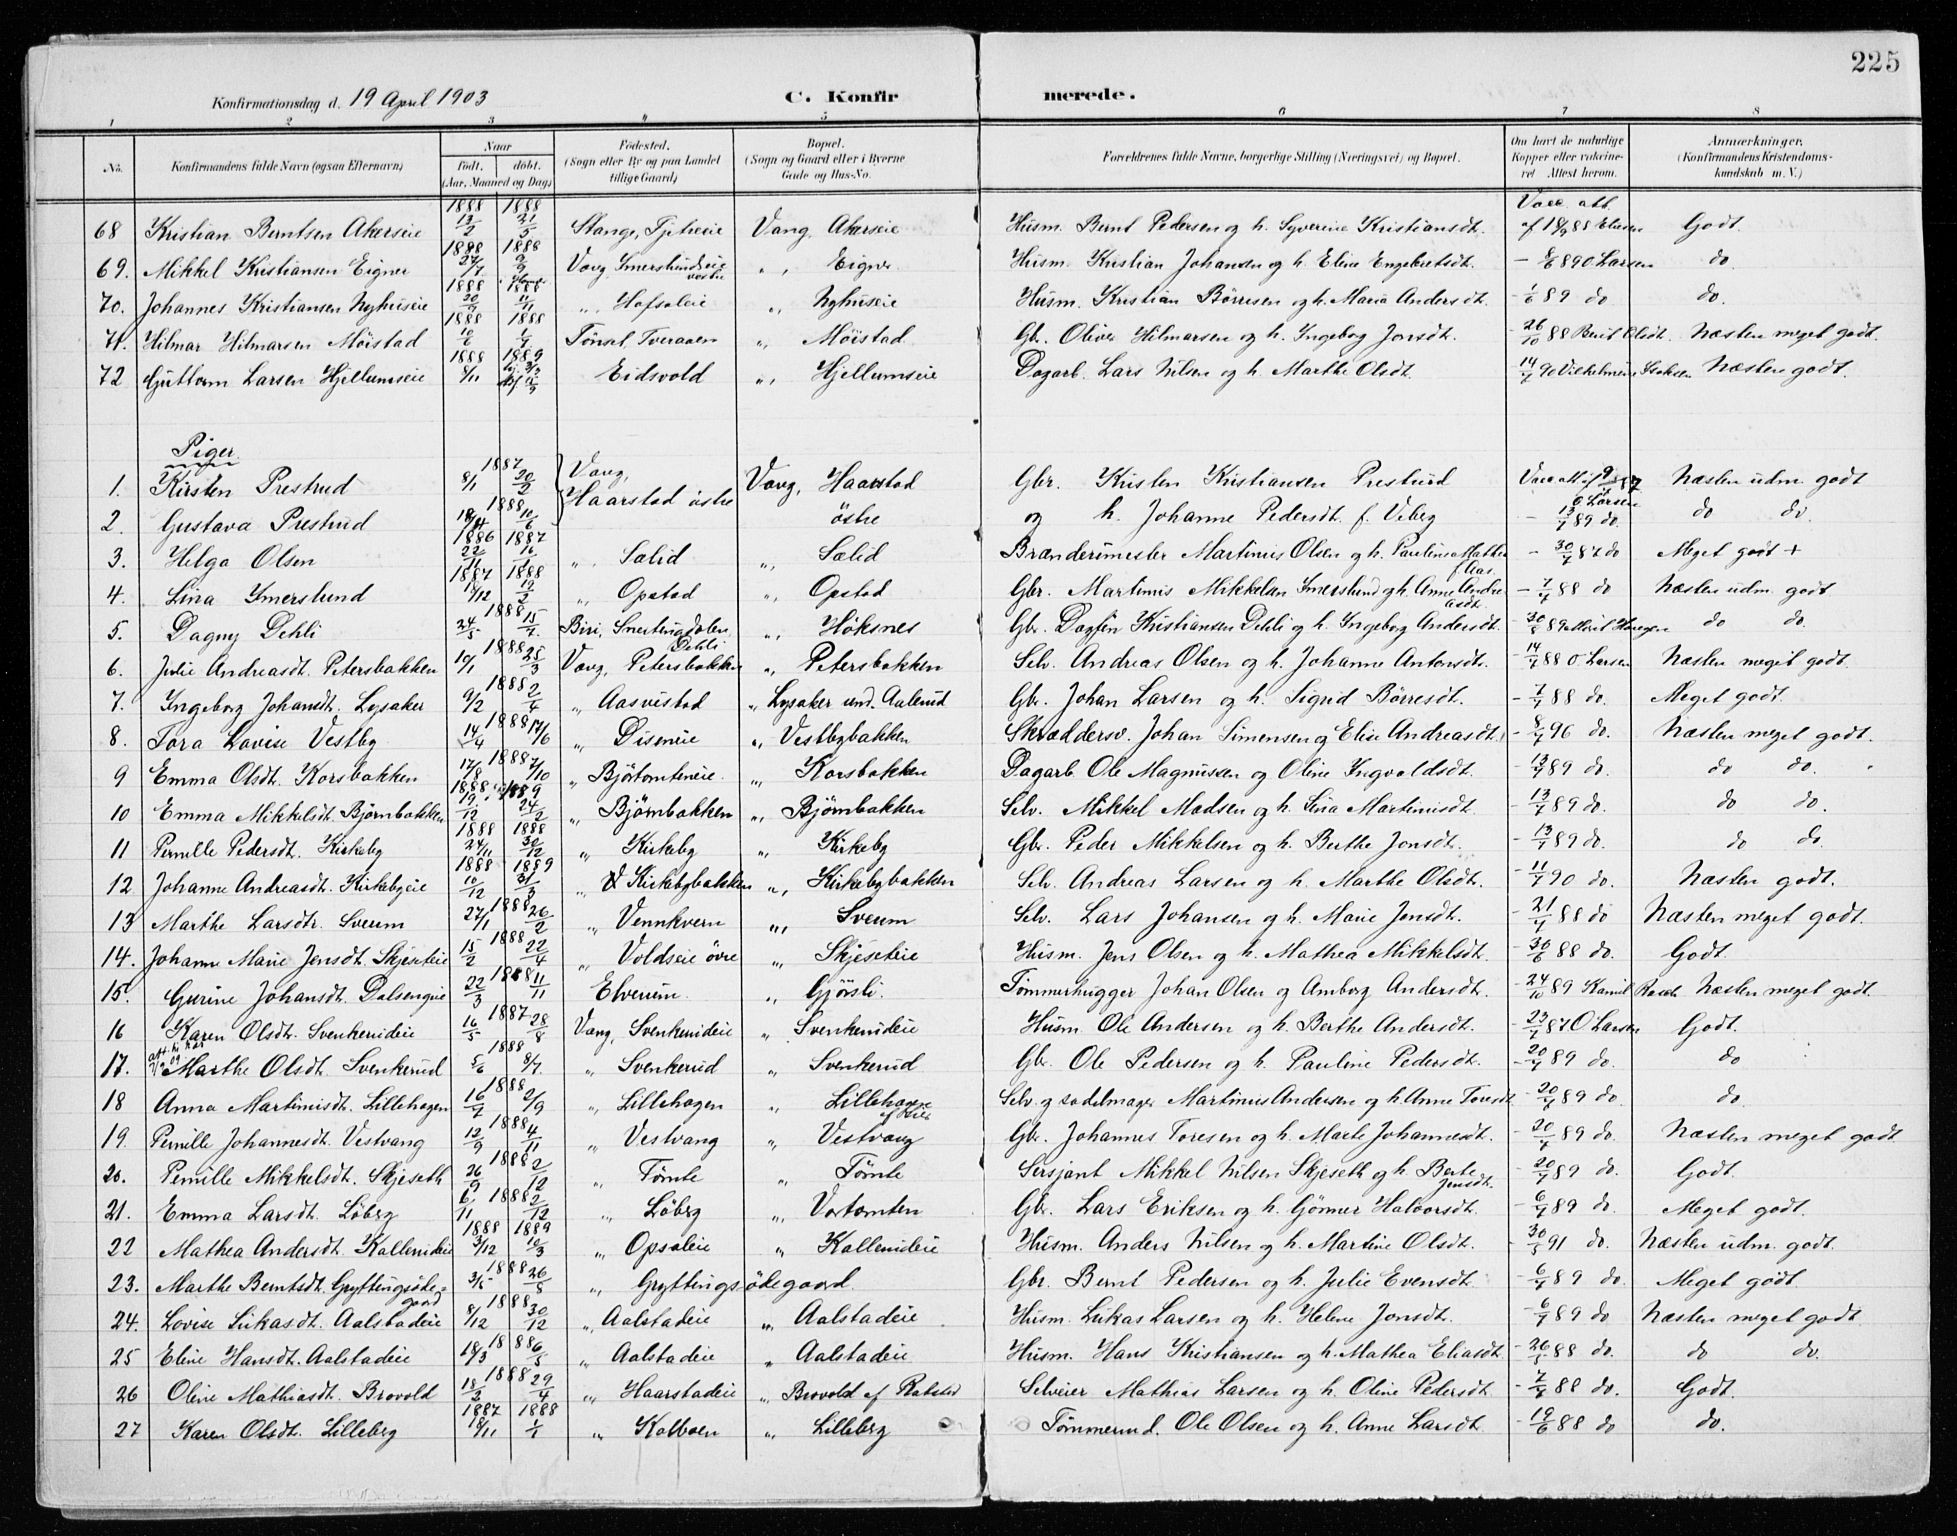 225
Konfirmationsdag d. 19 April 1903 C. Konfirmerede.
1 2 3 4 5 6 7 8
No. Konfirmandens fulde Navn (ogsaa Efternavn) Naar født. døbt. (Aar, Maaned og Dag) Fødested. (Sogn eller By og paa Landet tillige Gaard) Bopæl. (Sogn og Gaard eller i Byerne Gade og Hus-No. Forældrenes fulde Navne, borgerlige Stilling (Næringsvei) og Bopæl. Om havt de naturlige Kopper eller vakcineret. Attest herom. Anmærkninger. (Konfirmandens Kristendomskundskab m. V.)
68 Kristian Berntsen Akerseie 1888 13/2 1888 21/5 Stange, Vang, Akerseie Husm. Bernt Pedersen og h. Syverine Kristiansdt. Vacc. att. Godt.
69. Mikkel Kristiansen Eigner 1888 27/7 1888 9/9 Vang, Imerslundseie vestre „ Eigner Husm. Kristian Johansen og h. Eline Engebretsdt. O Larsen do
70. Johannes Kristiansen Nyhuseie 1888 30/9 1888 11/11 „ Hofsaleie „ Nyhuseie Husm. Kristian Börresen og h. Maria Andersdt. - 1/6 89 do do.
71. Hilmar Hilmarsen Möistad 1888 10/6 1888 1/7 Tönset, Tveraaen „ Möistad Gbr. Oliver Hilmarsen og h. Ingeborg Jonsdt. - 26/10 88 Berit Olsdt. Næsten meget godt.
72 Guttorm Larsen Hjellumseie 1888 8/11 1889 Eidsvold „ Hjellumseie Dagarb. Lars Nilsen og h. Marthe Olsdt. - 14/7 90 Vilhelmine Isaksen Næsten godt.
Piger.
1. Kirsten Prestrud 1887 8/1 20/2 Vang, Haarstad östre Vang, Haarstad Gbr. Kristen Kristiansen Prestrud Vacc att af O Larsen Næsten udm. godt
2 Gustava Prestrud 1888 10/6 östre og h. Johanne Pedersdt. f. Viberg - 13/7 89 do. do do.
3. Helga Olsen 1886 22/11 1887 16/1 „ Salid „ Salid Brænderimester Martinius Olsen og h. Pauline Mathea f. Aas. - 30/7 87 do Meget godt +
4. Lina Ymerslund 1887 1888 12/2 „ Opstad „ Opstad Gbr. Martinus Mikkelsen Imerslund og h. Anne Andreasdt. - 7/7 88 do Næsten udm. godt
5. Dagny Dehli 1888 24/5 15/7 Biri, Snertingdalen, Dehli „ Høksnes Gbr. Dagfin Kristiansen Dehli og h. Ingeborg Andersdt. - 30/8 89 do do.
6. Julie Andreasdt. Petersbakken 1888 10/1 25/3 Vang, Petersbakken „ Petersbakken Selv. Andreas Olsen og h. Johanne Antonsdt. - 14/7 88 O Larsen Næsten meget godt.
7. Ingeborg Johansdt. Lysaker 1888 9/2 2/4 „ Aasvestad „ Lysaker und. Aalerud Gbr. Johan Larsen og h. Sigrid Börresdt. - 7/7 88 do. Meget godt.
8. Tora Lovise Vestby 1888 14/4 17/6 „ Diseneie „ Vestbybakken Skræddersv. Johan Simensen og Elise Andreasdt. - 8/7 96 do. Næsten meget godt.
9 Emma Olsdt. Korsbakken 1888 17/8 7/10 „ Björtomteneie „ Korsbakken Dagarb. Ole Magnussen og Oline Ingvaldsdt. - 13/7 89 do. do do.
10 Emma Mikkelsdt. Bjørnbakken 1888 19/12 1889 24/2 „ Björnbakken „ Bjørnbakken Selv. Mikkel Madsen og h. Lina Martinusdt. - 13/7 89 do. do do.
11 Pernille Pedersdt. Kirkeby 1888 24/11 1888 30/12 „ Kirkeby „ Kirkeby Gbr. Peder Mikkelsen og h. Berthe Jonsdt. - 13/7 89 do. do do.
12 Johanne Andreasdt. Kirkebyeie 1888 10/12 1889 31/3 „ Kirkebybakken „ Kirkebybakken Selv. Andreas Larsen og h. Marthe Olsdt. - 11/7 90 do. Næsten godt.
13 Marthe Larsdtr. Sverum 1888 27/1 26/2 „ Vennkvern „ Sverum Selv. Lars Johansen og h. Marie Jensdt. - 21/7 88 do Næsten meget godt.
14. Johanne Marie Jensdt. Skjeseteie 1888 15/2 22/4 „ Voldseie övre „ Skjeseteie Husm. Jens Olsen og h. Mathea Mikkelsdt. - 30/6 88 do. Godt.
15. Gurine Johansdt. Dalsengeie 1888 22/3 11/11 Elverum. „ Gjörsli. Tømmerhugger Johan Olsen og Amborg Andersdt. - 24/10 89 Kamil Næsten meget godt.
16 Karen Olsdt. Svenkerudeie 1887 16/5 28/8 Vang, Svenkerudeie „ Svenkerudeie Husm. Ole Andersen og h. Berthe Andersdt. - 23/7 87 O Larsen Godt.
17. Marthe Olsdt. Svenkerud 1888 5/6 8/7 „ Svenkerud „ Svenkerud Gbr. Ole Pedersen og h. Pauline Pedersdt. - 20/7 89 do. do
18 Anna Martinusdt. Lillehagen 1888 16/7 2/9 „ Lillehagen „ Lillehagen Selv. og sadelmager Martinus Andersen og h. Anne Toresdt - 20/7 89 do. do.
19. Pernille Johannesdt. Vestvang 1888 12/9 4/11 „ Vestvang „ Vestvang Gbr. Johannes Toresen og h. Marte Johannesdt. - 20/7 89 do. Næsten meget godt
20. Pernille Mikkelsdt. Skjeseth 1888 26/9 2/12 „ Tömte „ Tömte Sersjant Mikkel Nilsen Skjeseth og h. Berte Jensdt. - 20/7 89 do. Godt.
21. Emma Larsdt. Löberg 1888 6/11 2/12 „ Löberg „ Vortomten Gbr. Lars Eriksen og h. Gönner Halvorsdt. - 6/7 89 do. Meget godt.
22 Mathea Andersdt. Kallerudeie 1888 3/12 1889 10/3 „ Opsaleie „ Kallerudeie Husm. Anders Nilsen og h. Martine Olsdt. - 30/5 91 do. Næsten udm. godt.
23. Marthe Berntsdt. Gryttingsödegaard 1888 3/5 26/8 „ Gryttingsödegaard Gbr. Bernt Pedersen og h. Julie Evensdt. - 6/7 89 do. Meget godt.
24. Lovise Lukasdt. Aalstadeie 1888 8/12 30/12 „ Aalstadeie „ Aalstadeie Husm. Lukas Larsen og h. Helene Jonsdt. - 6/7 89 do Næsten meget godt
25 Eline Hansdt. Aalstadeie 1888 18/3 6/5 „ Aalstadeie „ Aalstadeie Husm. Hans Kristiansen og h. Mathea Eliasdt. 88 do. do do.
26 Oline Mathiasdt. Brovold 1888 18/3 29/4 „ Haarstadeie „ Brovold af Rabstad Selveier Mathias Larsen og h. Oline Pedersdt. - 7/7 88 do. Godt.
27 Karen Olsdt. Lilleberg 1887 18/11 1888 1/1 „ Kolboen „ Lilleberg Tømmermd. Ole Olsen og h. Anne Larsdt. - 19/6 88 do do.